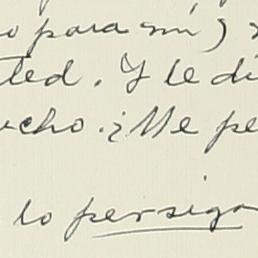 o para mí) y
ted. Y le di
ucho. ¿Me pe
lo persigo